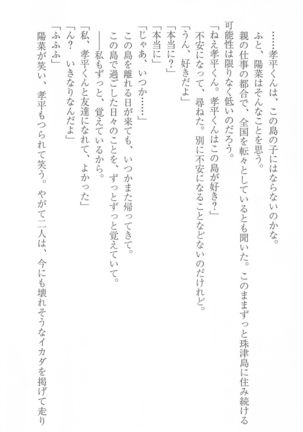 ……孝平くんは、この島の子にはならないのかな。
ふと、陽菜はそんなことを思う。
親の仕事の都合で、全国を転々としているとも聞いた。このままずっと珠津島に住み続ける
可能性は限りなく低いのだろう。
「ねえ孝平くん。孝平くんはこの島が好き？」
不安になって、尋ねた。別に不安になることなどないのだけれど。
「うん、好きだよ」
「本当に？」
「本当に」
「じゃあ、いつか……」
この島を離れる日が来ても、いつかまた帰ってきて。
この島で過ごした日々のことを、ずっとずっと覚えていて。
――私もずっと、覚えているから。
「私、孝平くんと友達になれて、よかった」
「ん？　いきなりなんだよ」
「ふふふ」
陽菜が笑い、孝平もつられて笑う。やがて二人は、今にも壊れそうなイカダを掲げて走り